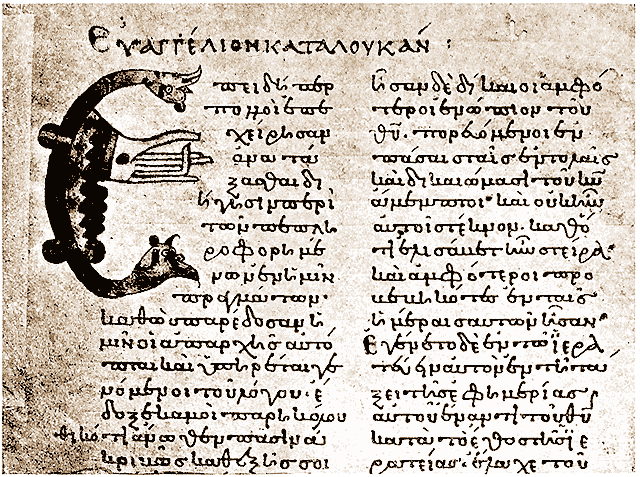 Εὐαγγέλιον κατὰ Λουκάν :
Ἐπειδήπερ
πολλοὶ ἐπε
χείρησαν
ἀνατά
ξασθαι δι
ήγησιν περὶ
τῶν πεπλη
ροφορημέ
νων ἐν ἡμῖν
πραγμάτων·
καθὼς παρέδοσαν ἡ
μῖν οἱ ἀπαρχῆς αὐτό
πται καὶ ὑπηρέται γε
νόμενοι τοῦ λόγου· ἔ
δοξε καμοὶ παρηκολου
θηκότι ἄνωθεν πᾶσιν ἀ
κριβῶς καθεξῆς σοι
ἦσαν δὲ δίκαιοι ἀμφό
τεροι ἐνώπιον τοῦ
θυ. πορευόμενοι ἐν
πάσαις ταῖς ἐντολαῖς
καὶ δικαιώμασι τοῦ κυ
ἄμεμπτοι· καὶ οὐκ ἦν
αὐτοῖς τέκνον. καθό
τι ἐλισάβετ ἦν στεῖρα·
καὶ ἀμφότεροι προ
βεβηκότες ἐν ταῖς
ἡμέραις αὐτῶν ἦσαν·
Ἐγένετο δὲ ἐν τῷ ἱερα
τεύειν αὐτὸν ἐν τῇ τά
ξει τῆς ἐφημερίας
αὐτοῦ ἔναντι τοῦ θυ
κατὰ τὸ ἔθος τῆς ἱε
ρατείας. ἔλαχε τοῦ